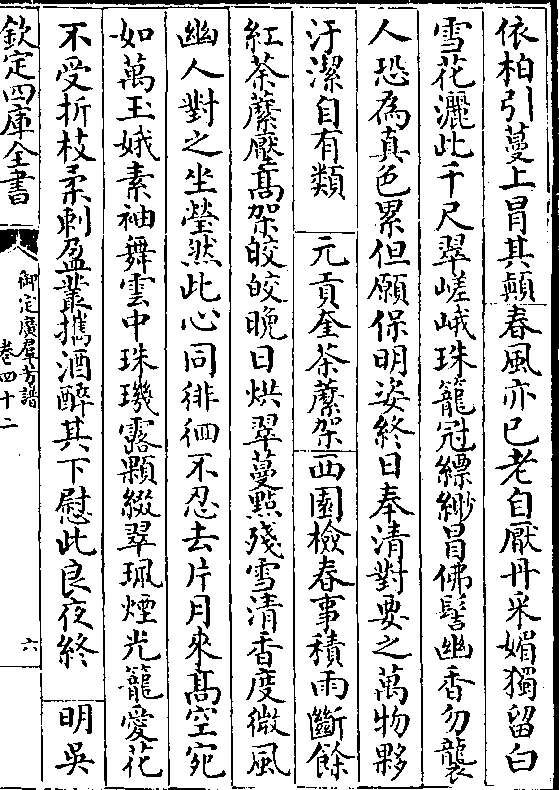 依柏引蔓上冒其顛春風亦已老自厭丹采媚獨留白
雪花灑此千尺翠嵯峨珠籠冠縹緲冒佛髻幽香勿襲
人恐為真色累但願保明姿終日奉清對要之萬物夥
汙潔自有類　元貢奎荼蘼架西園檢春事積雨斷餘
紅荼蘼壓髙架皎皎晚日烘翠蔓㸃殘雪清香度微風
幽人對之坐瑩然此心同徘徊不忍去片月來髙空宛
如萬玉娥素袖舞雲中珠璣露顆綴翠珮煙光籠愛花
不受折枝柔刺盈叢攜酒醉其下慰此良夜終　明吳
欽定四庫全書
御定廣羣芳譜
卷四十二
六